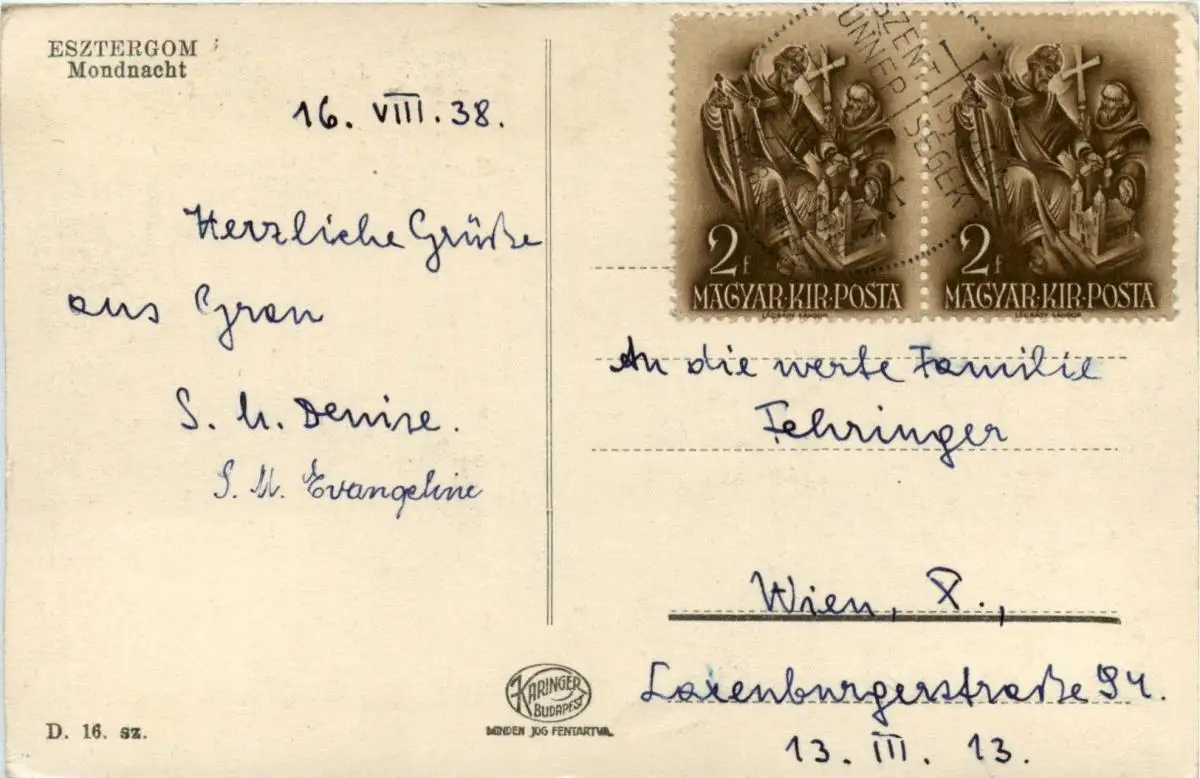 ESZTERGOM
Mondnacht
16. VIII. 38.
Herzliche Grüße
aus Gran
S. M. Denise.
S. M. Evangeline
D. 16. sz.
KARINGER
BUDAPEST
MINDEN JOG FENTARTVA.
SZENT ISTVÁN
ÜNNEPSÉGEK
2f
MAGYAR·KIR·POSTA
LÉGRÁDY SÁNDOR
2f
MAGYAR·KIR·POSTA
LÉGRÁDY SÁNDOR
An die werte Familie
Fehringer
Wien, X.,
Laxenburgerstraße 94.
13. III. 13.